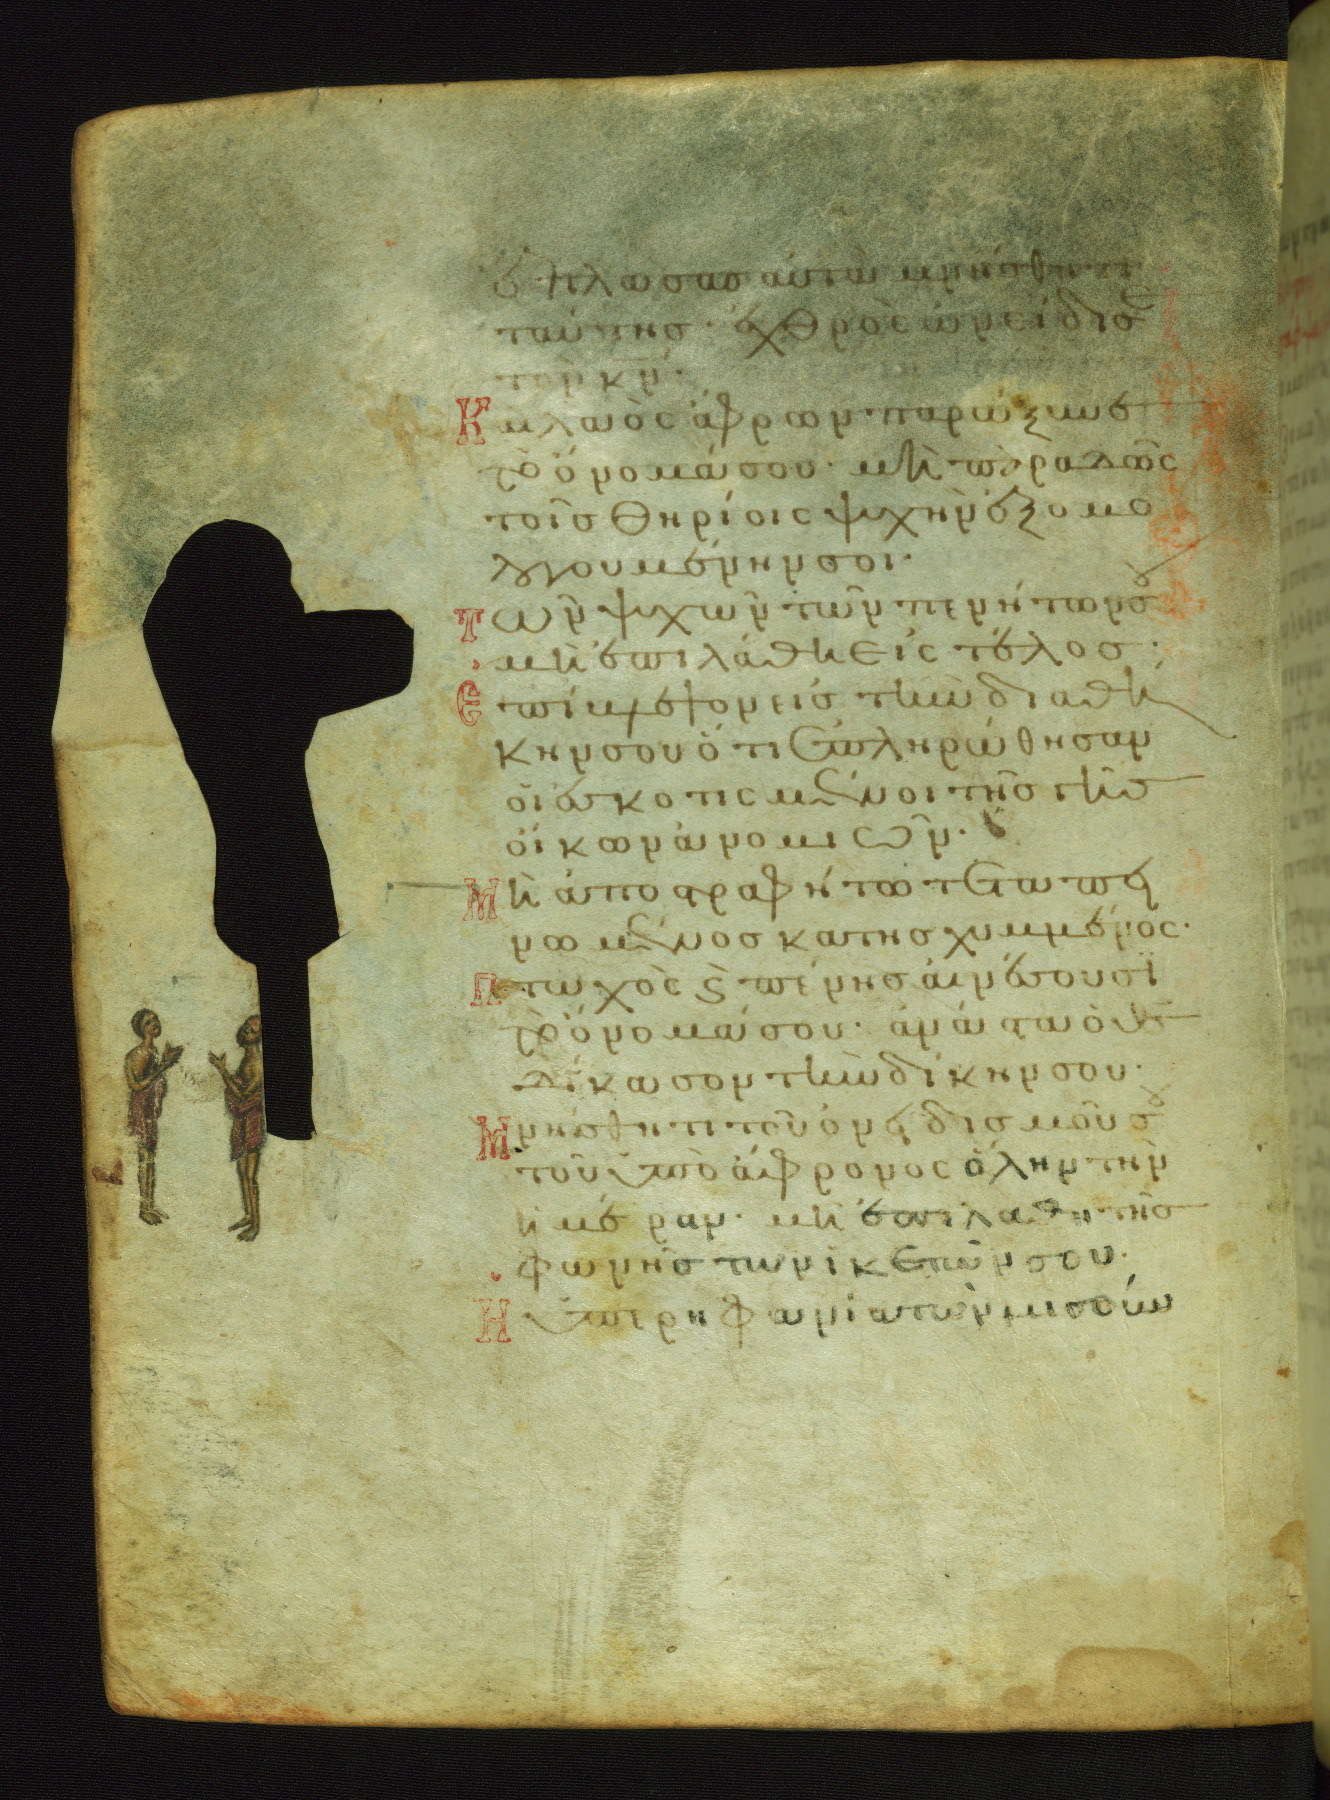 ἔπλασας αὐτά· μνήσθητι
ταύτης· ἐχθρὸς ὠνείδισε
τὸν κν̅·
Καὶ λαὸς ἄφρων παρώξυνε
τὸ ὄνομά σου· μὴ παραδῶς
τοῖς θηρίοις ψυχὴν ἐξομο
λογουμένην σοι·
Τῶν ψυχῶν τῶν πενήτων σου
μὴ ἐπιλάθη εἰς τέλος·
Ἐπίβλεψον εἰς τὴν διαθή
κην σου ὅτι ἐπληρώθησαν
οἱ ἐσκοτισμένοι τῆς γῆς
οἴκων ἀνομιῶν·
Μὴ ἀποστραφήτω τεταπει
νωμένος κατησχυμμένος·
Πτωχὸς ϗ πένης αἰνέσουσι
τὸ ὄνομά σου· ἀνάστα ὁ θς̅
δίκασον τὴν δίκην σου·
Μνήσθητι τοῦ ὀνειδισμοῦ σου
τοῦ ὑπὸ ἄφρονος ὅλην τὴν
ἡμέραν· μὴ ἐπιλάθη τῆς
φωνῆς τῶν ἱκετῶν σου·
Ἡ ὑπερηφανία τῶν μισούν